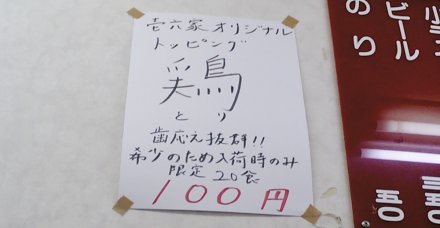 壱六家オリジナル
トッピング
鶏
とり
歯応え抜群!!
希少のため入荷時のみ
限定20食
100円
ビール
のり